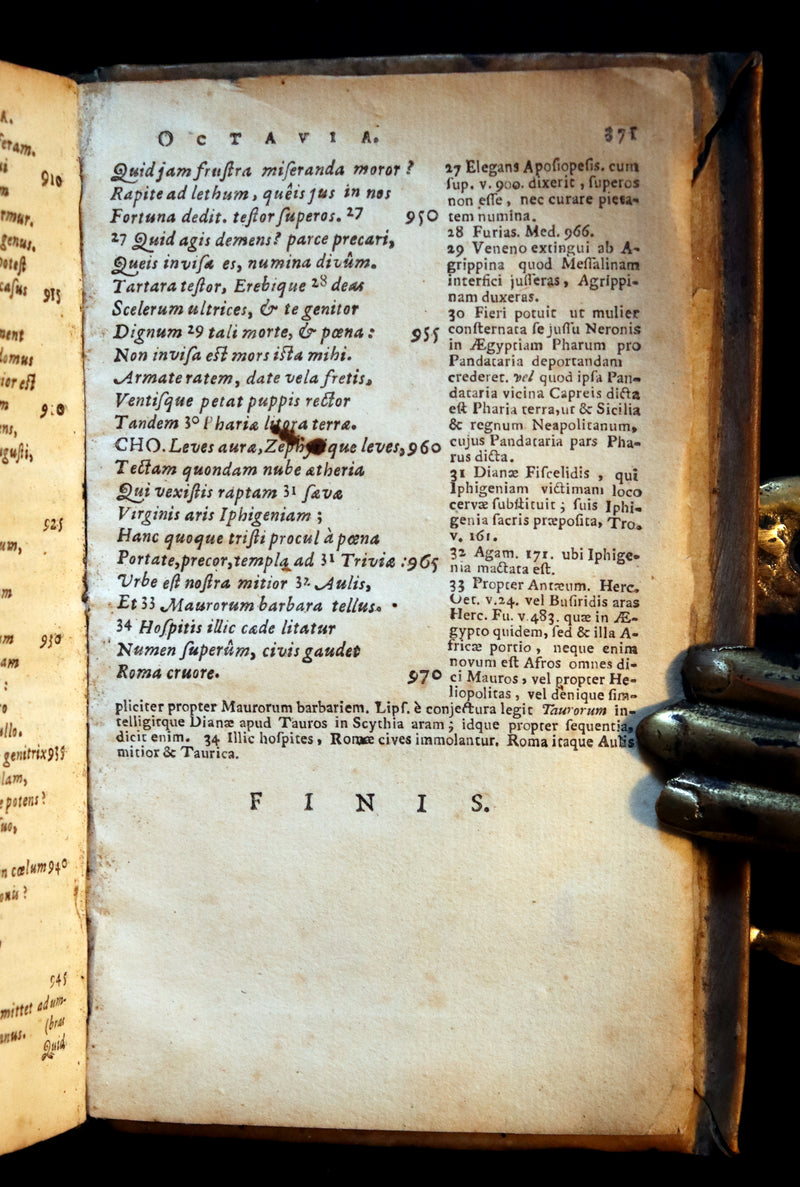 A.
eram,
910
termur,
genus,
potest
casus 915
nent
domus
ior est
920
ens,
gustii,
525
um,
m
m 930
am
:
o
illo.
genitrix 935
lam,
potens?
uo,
n cœlum 940
onis?
945
mittet adum-
(brat
anus.
Quid
OCTAVIA. 371
Quid jam frustra miseranda moror?
Rapite ad lethum, quêis jus in nos
Fortuna dedit. testor superos. 27 950
27 Quid agis demens? parce precari,
Queis invisa es, numina divûm.
Tartara testor, Erebique 28 deas
Scelerum ultrices, & te genitor
Dignum 29 tali morte, & pœna: 955
Non invisa est mors ista mihi.
Armate ratem, date vela fretis,
Ventisque petat puppis rector
Tandem 30 Phariæ litora terræ.
CHO. Leves auræ, Zephyrique leves, 960
Tectam quondam nube ætheria
Qui vexistis raptam 31 sævæ
Virginis aris Iphigeniam;
Hanc quoque tristi procul à pœna
Portate, precor, templa ad 31 Triviæ: 965
Vrbe est nostra mitior 32 Aulis,
Et 33 Maurorum barbara tellus.
34 Hospitis illic cæde litatur
Numen superûm, civis gaudet
Roma cruore. 970
27 Elegans Aposiopesis. cum
sup. v. 900. dixerit, superos
non esse, nec curare pieta-
tem numina.
28 Furias. Med. 966.
29 Veneno extingui ab A-
grippina quod Messalinam
interfici jusseras, Agrippi-
nam duxeras.
30 Fieri potuit ut mulier
consternata se jussu Neronis
in Ægyptiam Pharum pro
Pandataria deportandam
crederet. vel quod ipsa Pan-
dataria vicina Capreis dicta
est Pharia terra, ut & Sicilia
& regnum Neapolitanum,
cujus Pandataria pars Pha-
rus dicta.
31 Dianæ Fiscelidis, qui
Iphigeniam victimam loco
cervæ substituit; suis Iphi-
genia sacris præposita, Tro.
v. 161.
32 Agam. 171. ubi Iphige-
nia mactata est.
33 Propter Antæum. Herc.
Oet. v.24. vel Busiridis aras
Herc. Fu. v.483. quæ in Æ-
gypto quidem, sed & illa A-
fricæ portio, neque enim
novum est Afros omnes di-
ci Mauros, vel propter He-
liopolitas, vel denique sim-
pliciter propter Maurorum barbariem. Lips. è conjectura legit Taurorum in-
telligitque Dianæ apud Tauros in Scythia aram; idque propter sequentia,
dicit enim. 34 Illic hospites, Romæ cives immolantur. Roma itaque Aulis
mitior & Taurica.
FINIS.